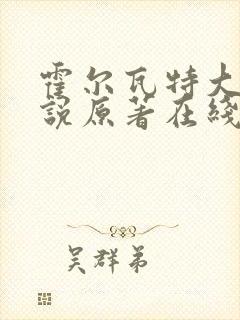 霍尔瓦特大
说原著在线
吴群弟